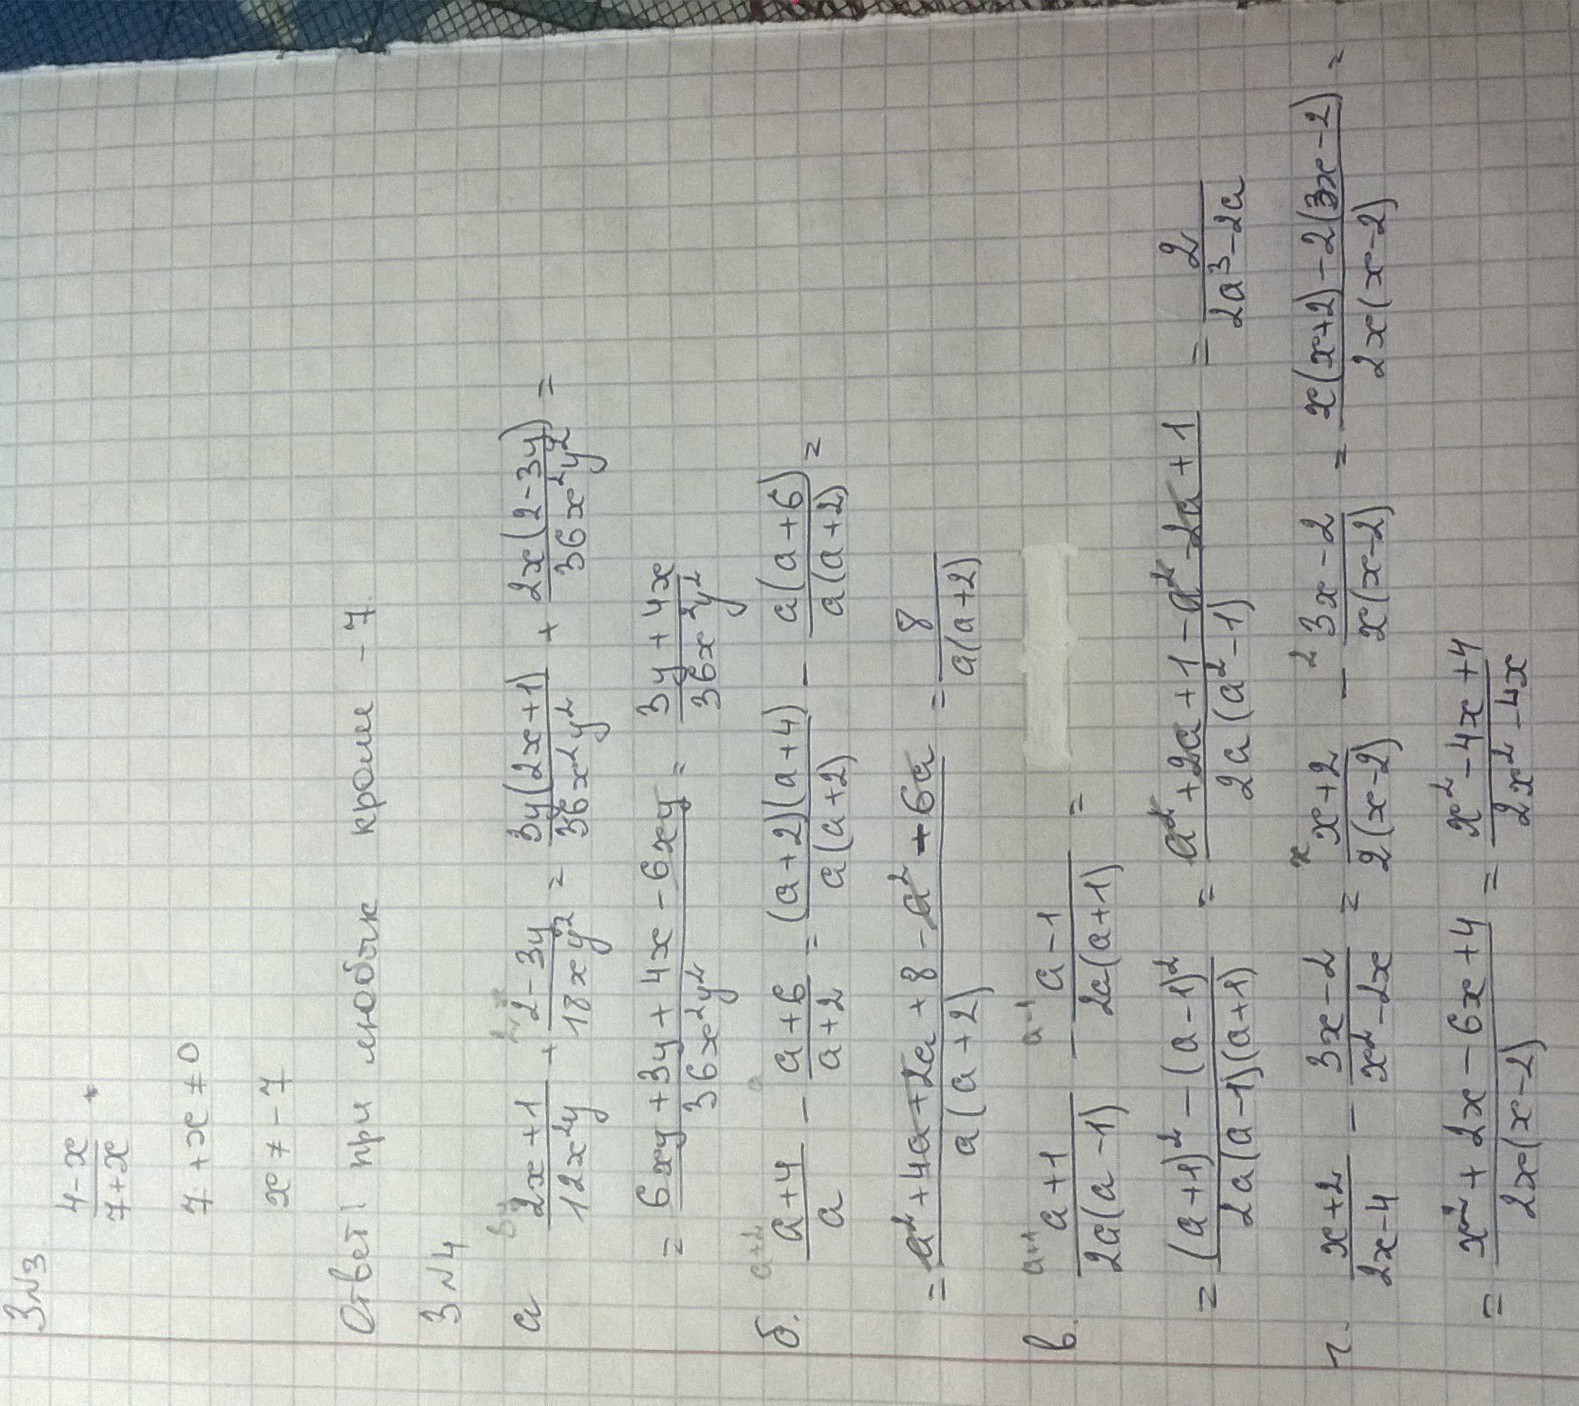 3N3.
4-x / 7+x
7+x≠0
x≠-7
Ответ: при любых кроме -7.
3N4
а (2x+1)/(12x²y) + (2-3y)/(18xy²) = 3y(2x+1)/(36x²y²) + 2x(2-3y)/(36x²y²) =
= (6xy+3y+4x-6xy)/(36x²y²) = (3y+4x)/(36x²y²)
б. (a+4)/a - (a+6)/(a+2) = (a+2)(a+4)/(a(a+2)) - a(a+6)/(a(a+2)) =
= (a²+4a+2a+8-a²+6a)/(a(a+2)) = 8/(a(a+2))
в. a+1 (a+1)/(2a(a-1)) - a-1 (a-1)/(2a(a+1)) =
= ((a+1)²-(a-1)²)/(2a(a-1)(a+1)) = (a²+2a+1-a²-2a+1)/(2a(a²-1)) = 2/(2a³-2a)
г. (x+2)/(2x-4) - (3x-2)/(x²-2x) = x (x+2)/(2(x-2)) - 2 (3x-2)/(x(x-2)) = (x(x+2)-2(3x-2))/(2x(x-2)) =
= (x²+2x-6x+4)/(2x(x-2)) = (x²-4x+4)/(2x²-4x)